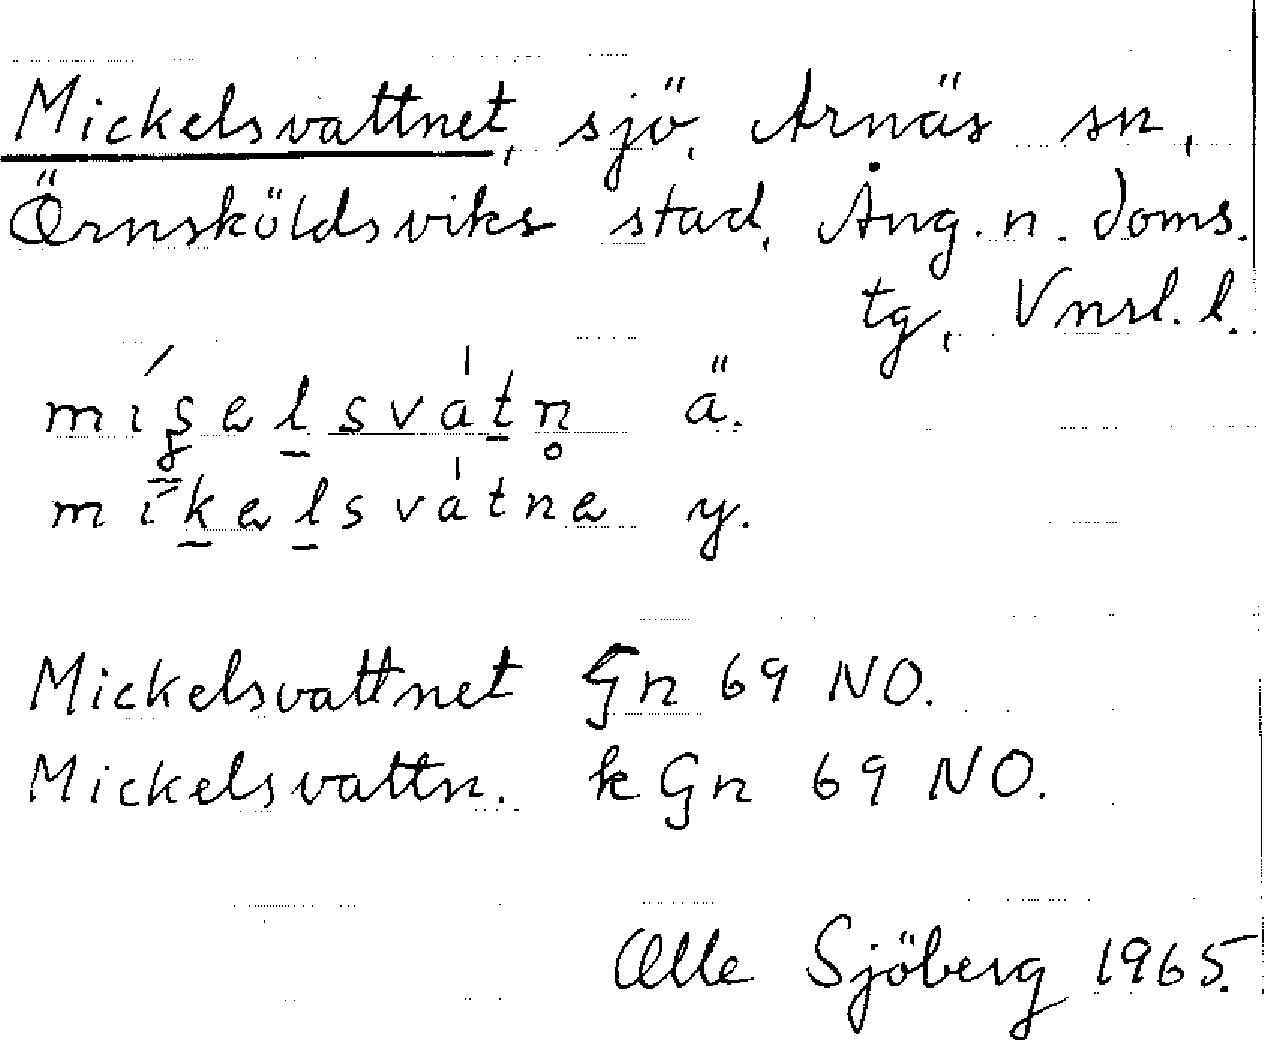 Mickelsvattnet, sjö, Arnäs sn,
Örnsköldsviks stad, Ång. n. doms.
tg, Vnrl. l.
míʂelsvàtn̥ ä.
míkelsvàtne y.
Mickelsvattnet Gn 69 NO.
Mickelsvattn. k Gn 69 NO.
Olle Sjöberg 1965.